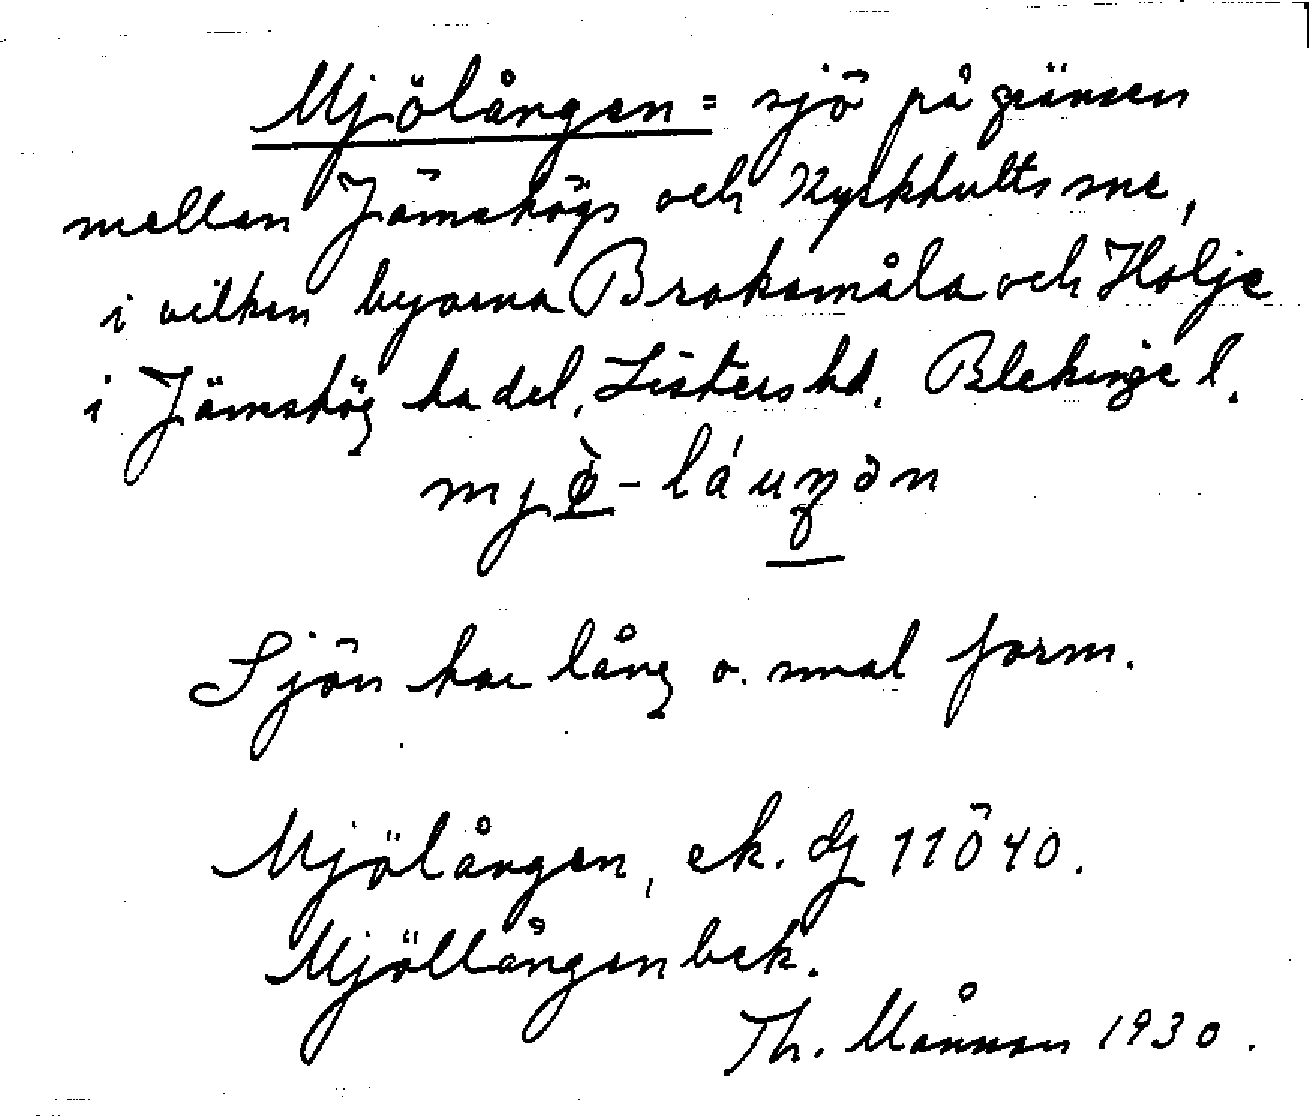 Mjölången = sjö på gränsen
mellan Jämshögs och Kyrkhults snr,
i vilken byarna Brokamåla och Holje
i Jämshög ha del. Listers hd. Blekinge l.
Sjön har lång o. smal form.
Mjölången, ek. bl 11Ö40.
Mjöllången bek.
Th. Månsson 1930.